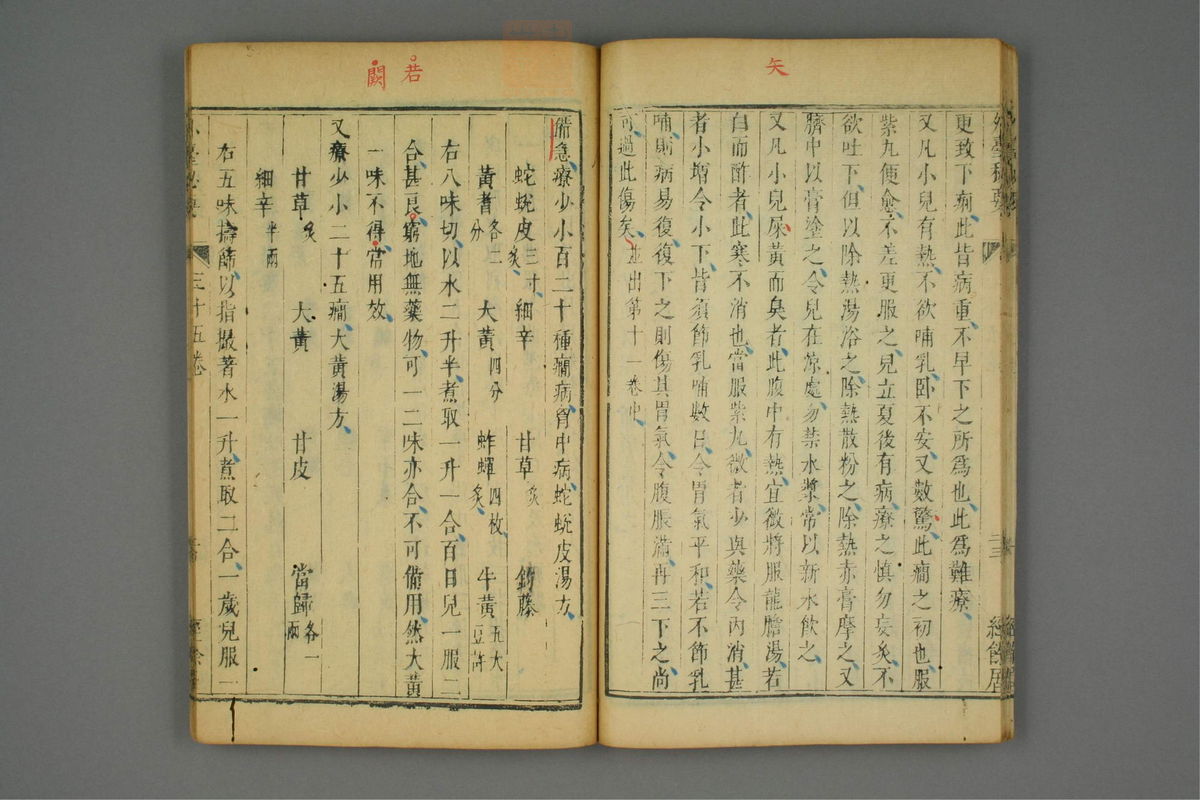 矢
外臺秘要
二三
經餘居
更致下痢此皆病重不早下之所爲也此爲難療
又凡小兒有熱不欲哺乳卧不安又數驚此癇之初也服
紫丸便愈不差更服之兒立夏後有病療之慎勿妄灸不
欲吐下但以除熱湯浴之除熱散粉之除熱赤膏摩之又
臍中以膏塗之令兒在凉處勿禁水漿常以新水飲之
又凡小兒屎黃而臭者此腹中有熱宜微將服龍膽湯若
白而酢者此寒不消也當服紫丸微者少與藥令內消甚
者小増令小下皆須節乳哺數日令胃氣平和若不節乳
哺則病易復復下之則傷其胃氣令腹脹滿再三下之尚
可過此傷矣並出第十一卷中
若
闕
備急療少小百二十種癇病胷中病蛇蛻皮湯方
蛇蛻皮三寸炙 細辛 甘草炙 鉤藤
黃耆各二分 大黃四分 蚱蟬四枚炙 牛黃五大豆許
右八味切以水二升半煮取一升一合百日兒一服二
合甚良窮地無藥物可一二味亦合不可備用然大黃
一味不得常用效
又療少小二十五癇大黃湯方
甘草炙 大黃 甘皮 當歸各一兩
細辛半兩
右五味擣篩以指撮著水一升煮取二合一歲兒服二
三十五卷